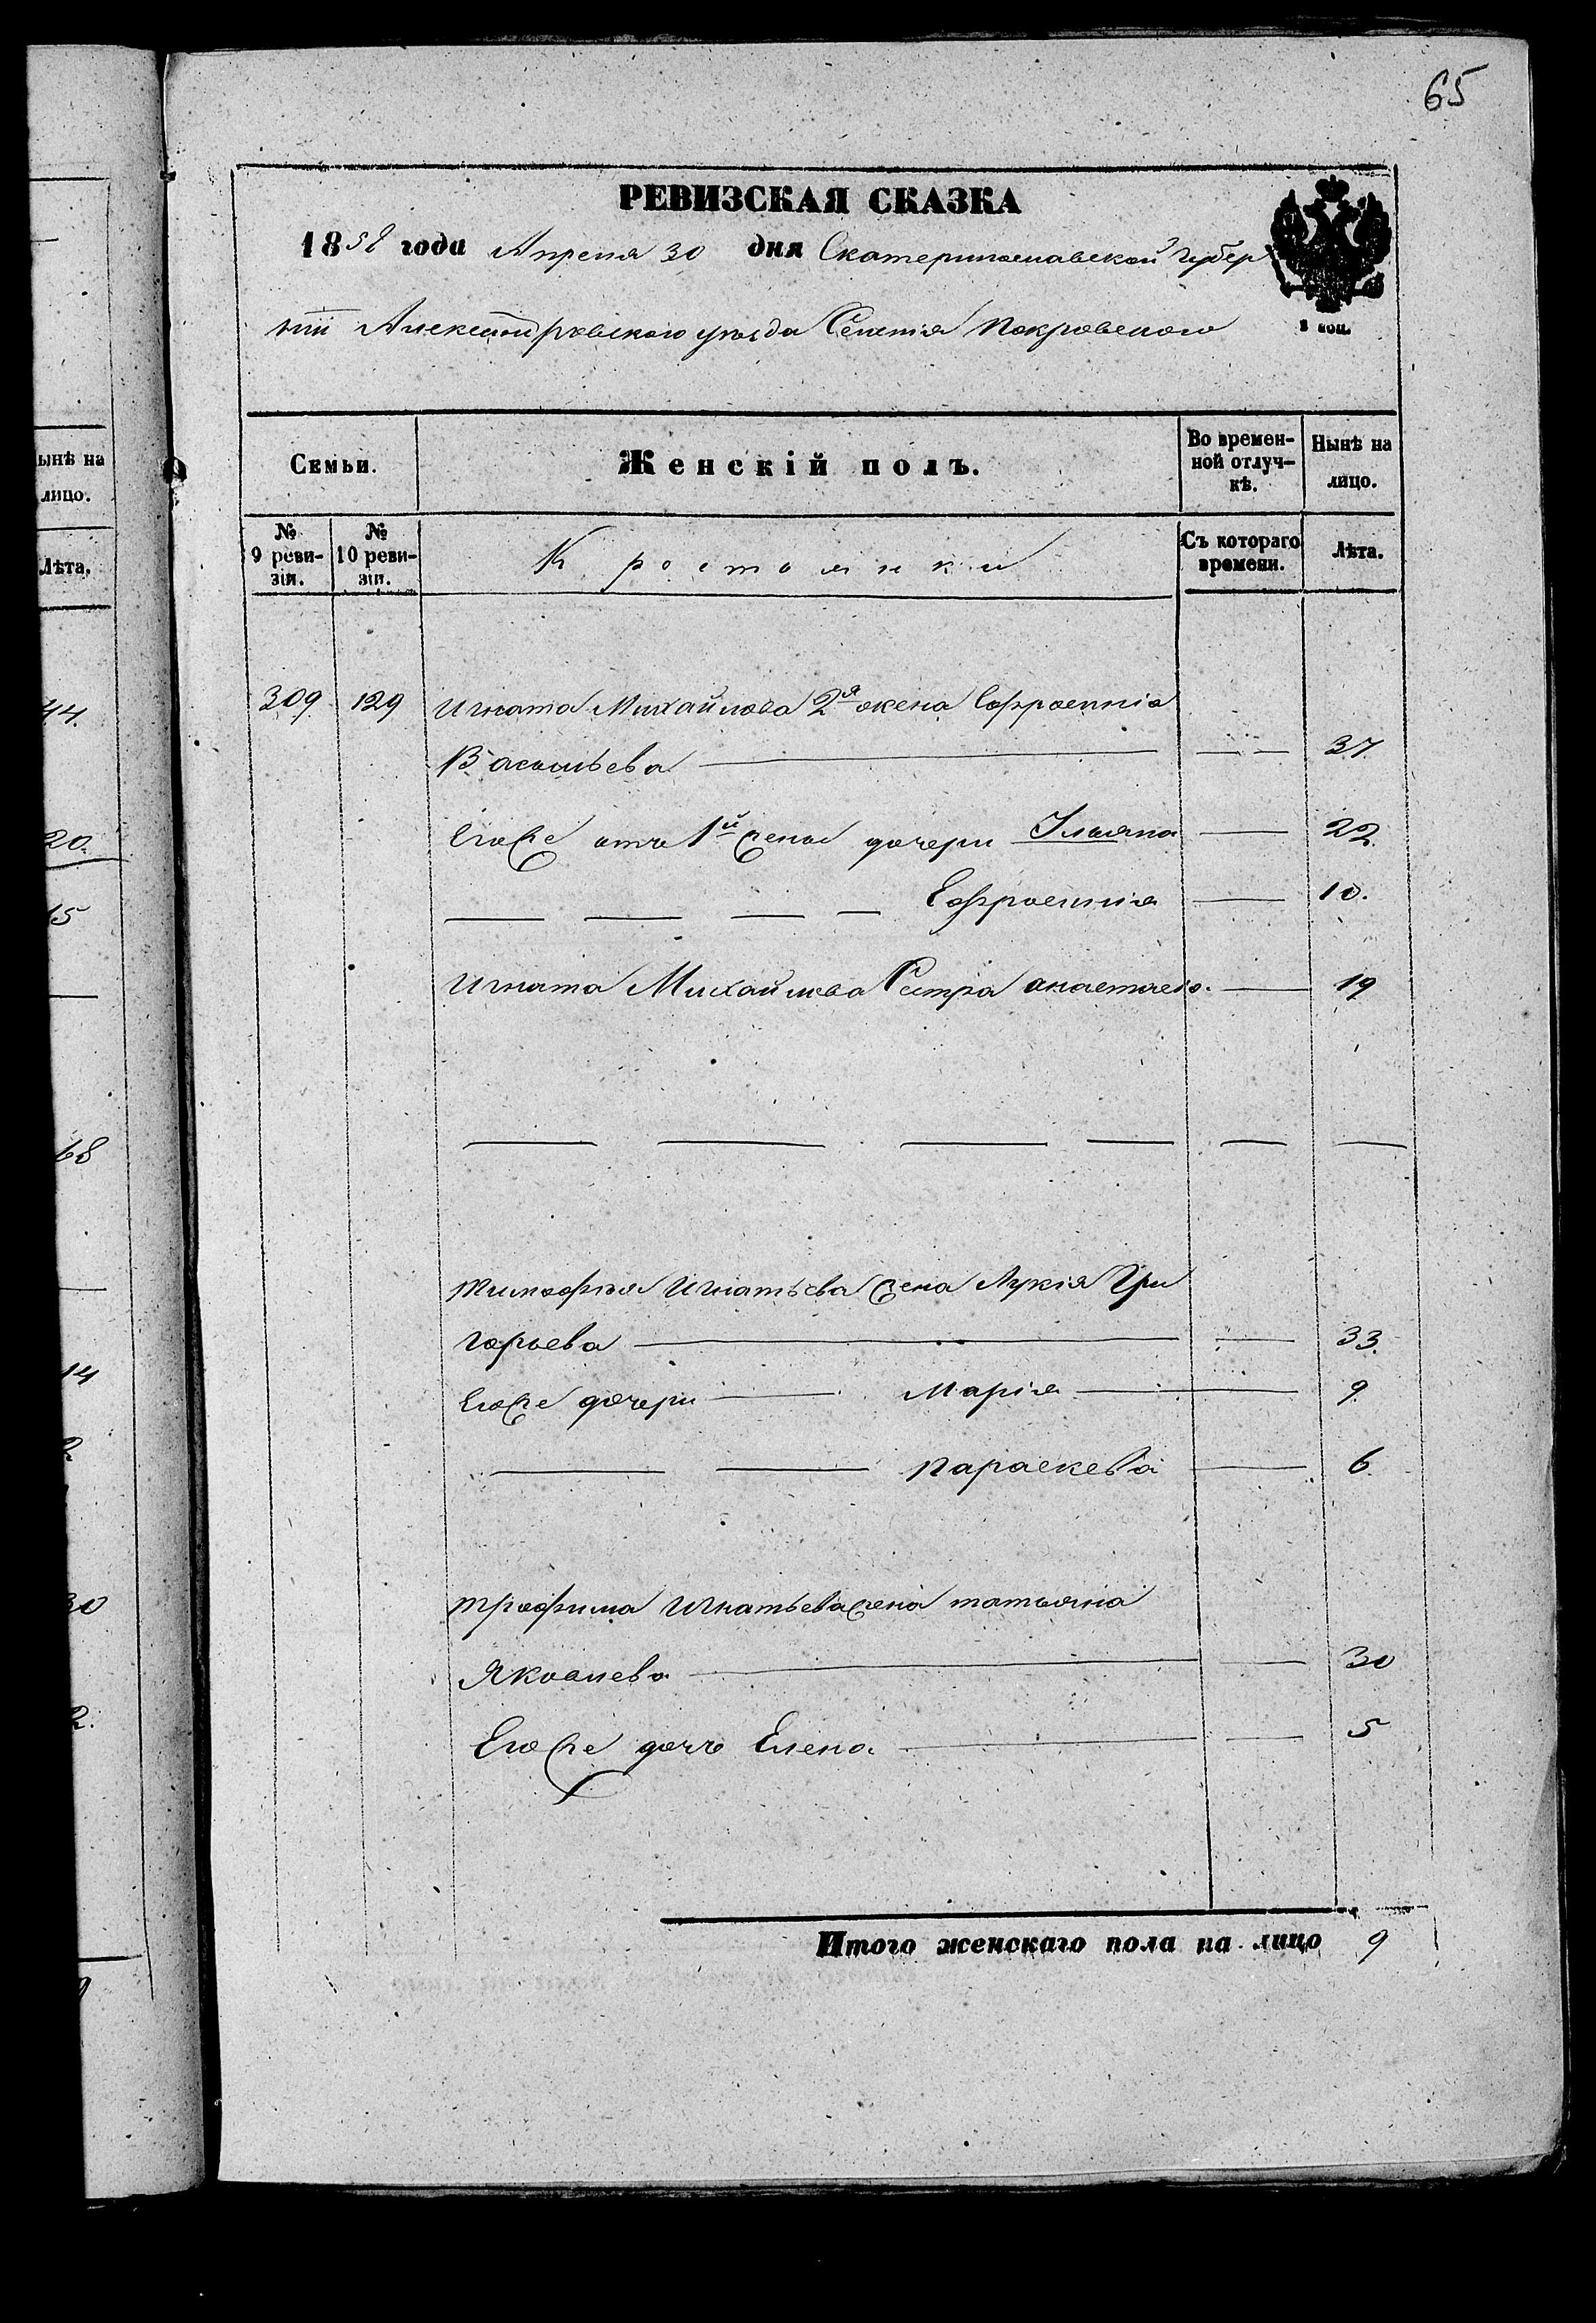 65
РЕВИЗСКАЯ СКАЗКА
1858 года Апреля 30 дня Екатеринославской Губер
нии Александровского уезда Селения Покровского
ынѣ на
лицо.
Лѣта.
44.
20.
15
68
14
2
30
2.
Семьи.
Женскій полъ.
Во времен-
ной отлуч-
кѣ.
Нынѣ на
лицо.
№
9 реви-
зіи.
№
10 реви-
зіи.
Съ котораго
времени.
Лѣта.
309 129 Игната Михайлова 2я жена Ефросинія
Васильева 37
Егоже отъ 1й жены дочери Ульяна 22
Ефросинія 10.
Игната Михайлова Сестра анастасія 19
тимофея Игнатьева жена Лукія Гри
горьева 33.
Егоже дочери Марія 9
параскева 6.
трофима Игнатьева жена татьяна
Яковлева 30
Егоже дочь Елена 5
Итого женскаго пола на лицо 9